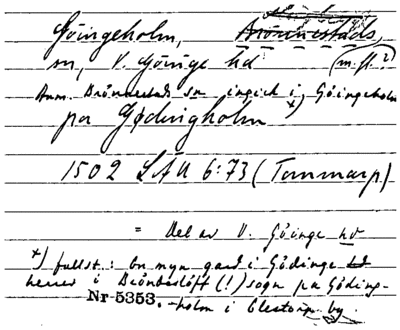 Göingeholm, Brönnestads
sn, V. Göinge hd (m. fl.?)
Anm. Brönnestad sn ingick i x) Göingeholm
pa Gødingholm
1502 LÅU 6:73 (Tommarp)
= Del av V. Göinge hd
x) fullst.: en myn gard i Gödinge
herret i Brönberlöff (!) sogn pa Göding-
Nr 5353. -holm i Glestorp by.